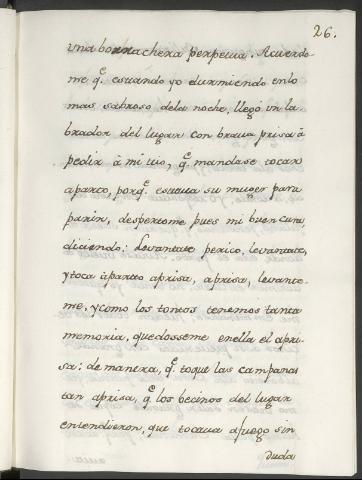 26.
vna borrachera perpetua. Acuerdo
me q.e estando yo durmiendo en lo
mas sabroso dela noche, llegó vn la
brador del lugar con braua prisa à
pedir à mi tio, q.e mandase tocar
aparto, porq.e estaua su muger para
parir, despertome pues mi buen cura,
diciendo: Levantate perico, levantate,
y toca àparto aprisa, aprisa, levante-
me, y como los tontos tenemos tanta
memoria, quedosseme enella el apri-
sa: de manera, q.e toque las campanas
tan aprisa, q.e los becinos del lugar
entendieron, que tocaua afuego sin
duda